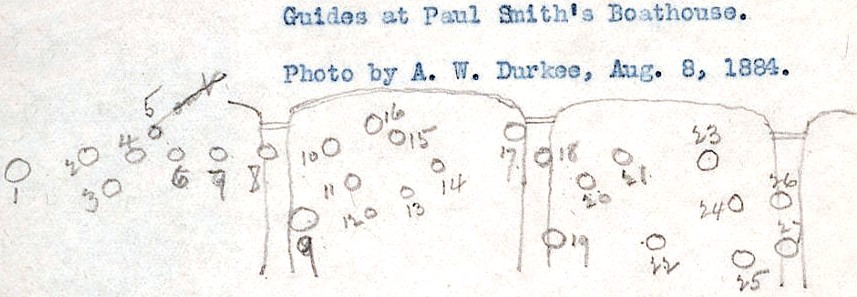 Guides at Paul Smith's Boathouse.
Photo by A. W. Durkee, Aug. 8, 1884.
5 16 23
4 15
2 10 17 18 21
1 3 6 7 8 11 14 20 26
12 13 24
9 19 22 25 27